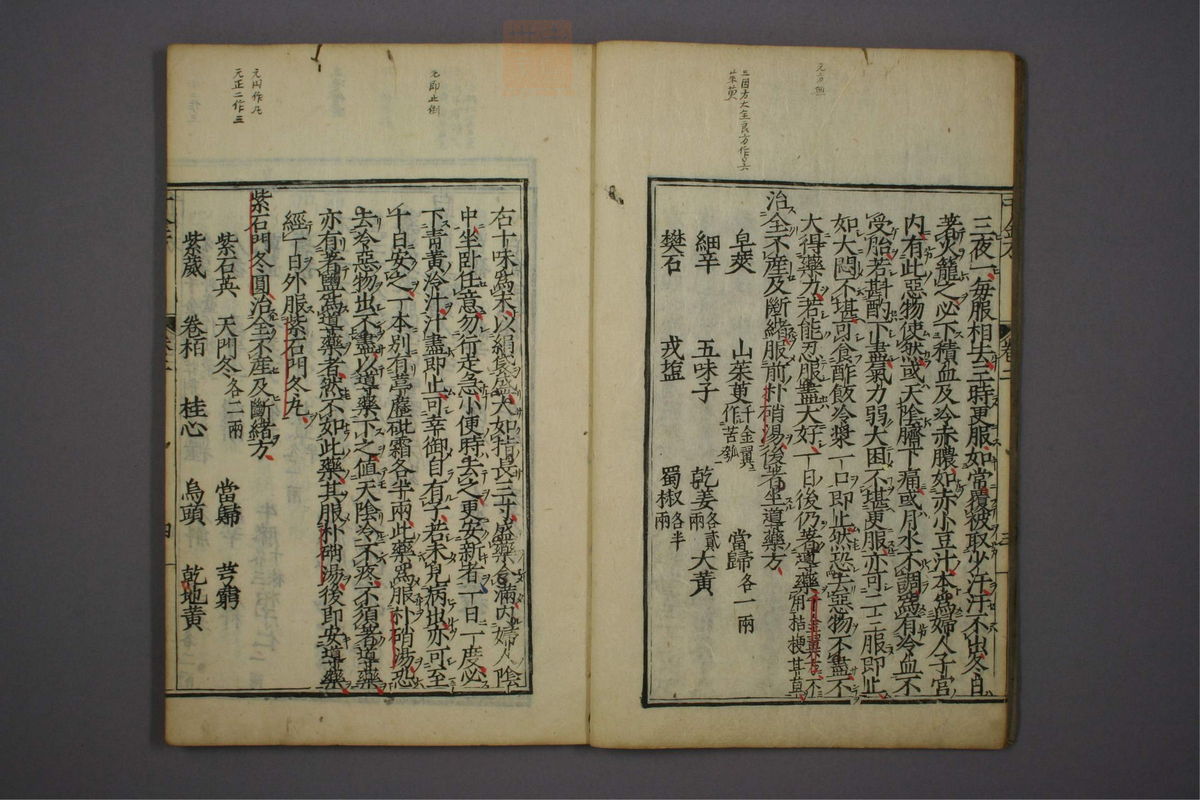 元方無
三因方大全良方作各六
山茱萸
三夜一毎服相去三時更服如常覆被取少汗汗不出冬日
著火籠之必下積血及冷赤膿如赤小豆汁本爲婦人子宮
内有此惡物使然或天陰臍下痛或月水不調爲有冷血不
受胎若斟酌下盡氣力弱大困不堪更服亦可二三服即止
如大悶不堪可食酢飯冷漿一口即止然恐去惡物不盡不
大得藥力若能忍服盡大好一日後仍著導藥千金翼方不
用桔梗甘草
治全不産及斷緒服前朴硝湯後著坐導藥方
皂莢 山茱萸千金翼作苦瓠 當歸各一兩
細辛 五味子 乾姜各貳兩 大黄
礬石 戎塩 蜀椒各半兩
元即止倒
元円作丸
元正二作三
右十味爲末以絹袋盛大如指長三寸盛藥令滿内婦人陰
中坐卧任意勿行走急小便時去之更安新者一日一度必
下青黄冷汁汁盡即止可幸御自有子若未見病出亦可至
十日安之一本別有葶藶砒霜各半兩此藥爲服朴硝湯恐
去冷惡物出不盡以導藥下之値天陰冷不疼不須著導藥
亦有著鹽爲導藥者然不如此藥其服朴硝湯後即安導藥
經一日外服紫石門冬丸
紫石門冬圓治全不産及斷緒方
紫石英 天門冬各二兩 當歸 芎藭
紫葳 卷栢 桂心 烏頭 乾地黄